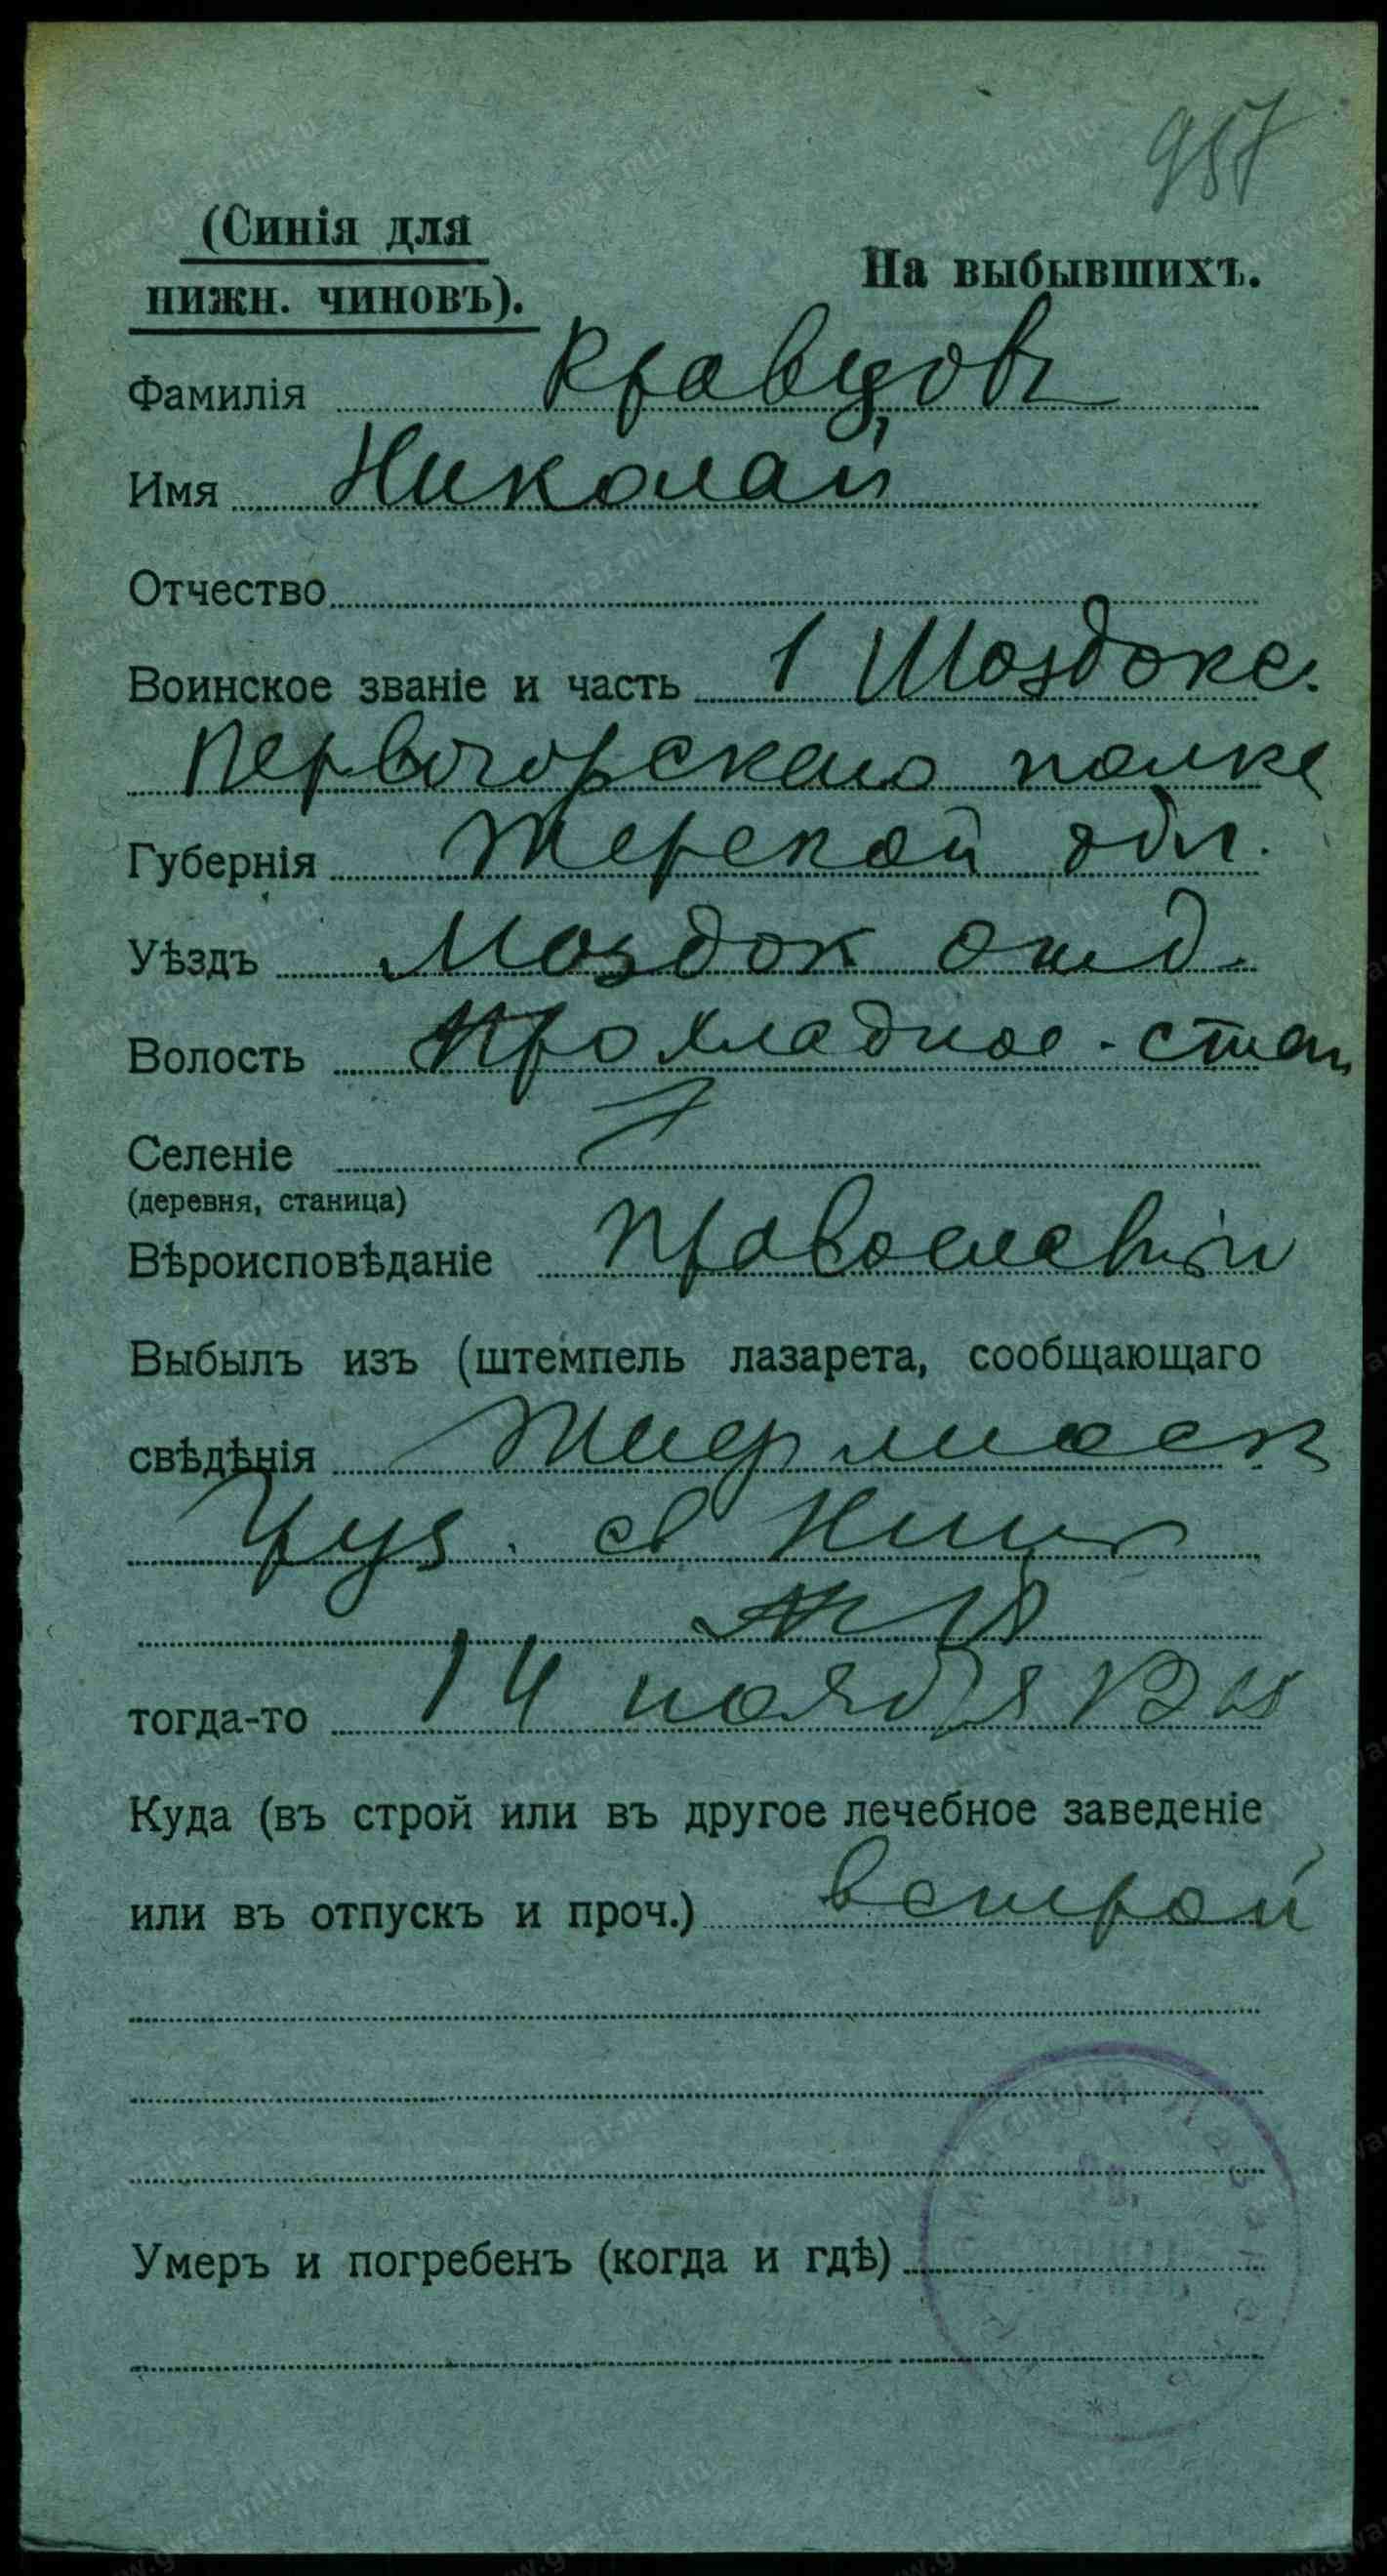 957
(Синія для
нижн. чиновъ).
На выбывшихъ.
Фамилія Кравцовъ
Имя Николай
Отчество
Воинское званіе и часть 1 Моздокс.
полка
Губернія Терской обл.
Уѣздъ Моздок отд.
Волость Прохладное - стан
Селеніе
(деревня, станица)
Вѣроисповѣданіе Православный
Выбылъ изъ (штемпель лазарета, сообщающаго
свѣдѣнія
Груз. св Нины
тогда-то 14 ноября
Куда (въ строй или въ другое лечебное заведеніе
или въ отпускъ и проч.) в строй
Умеръ и погребенъ (когда и гдѣ)